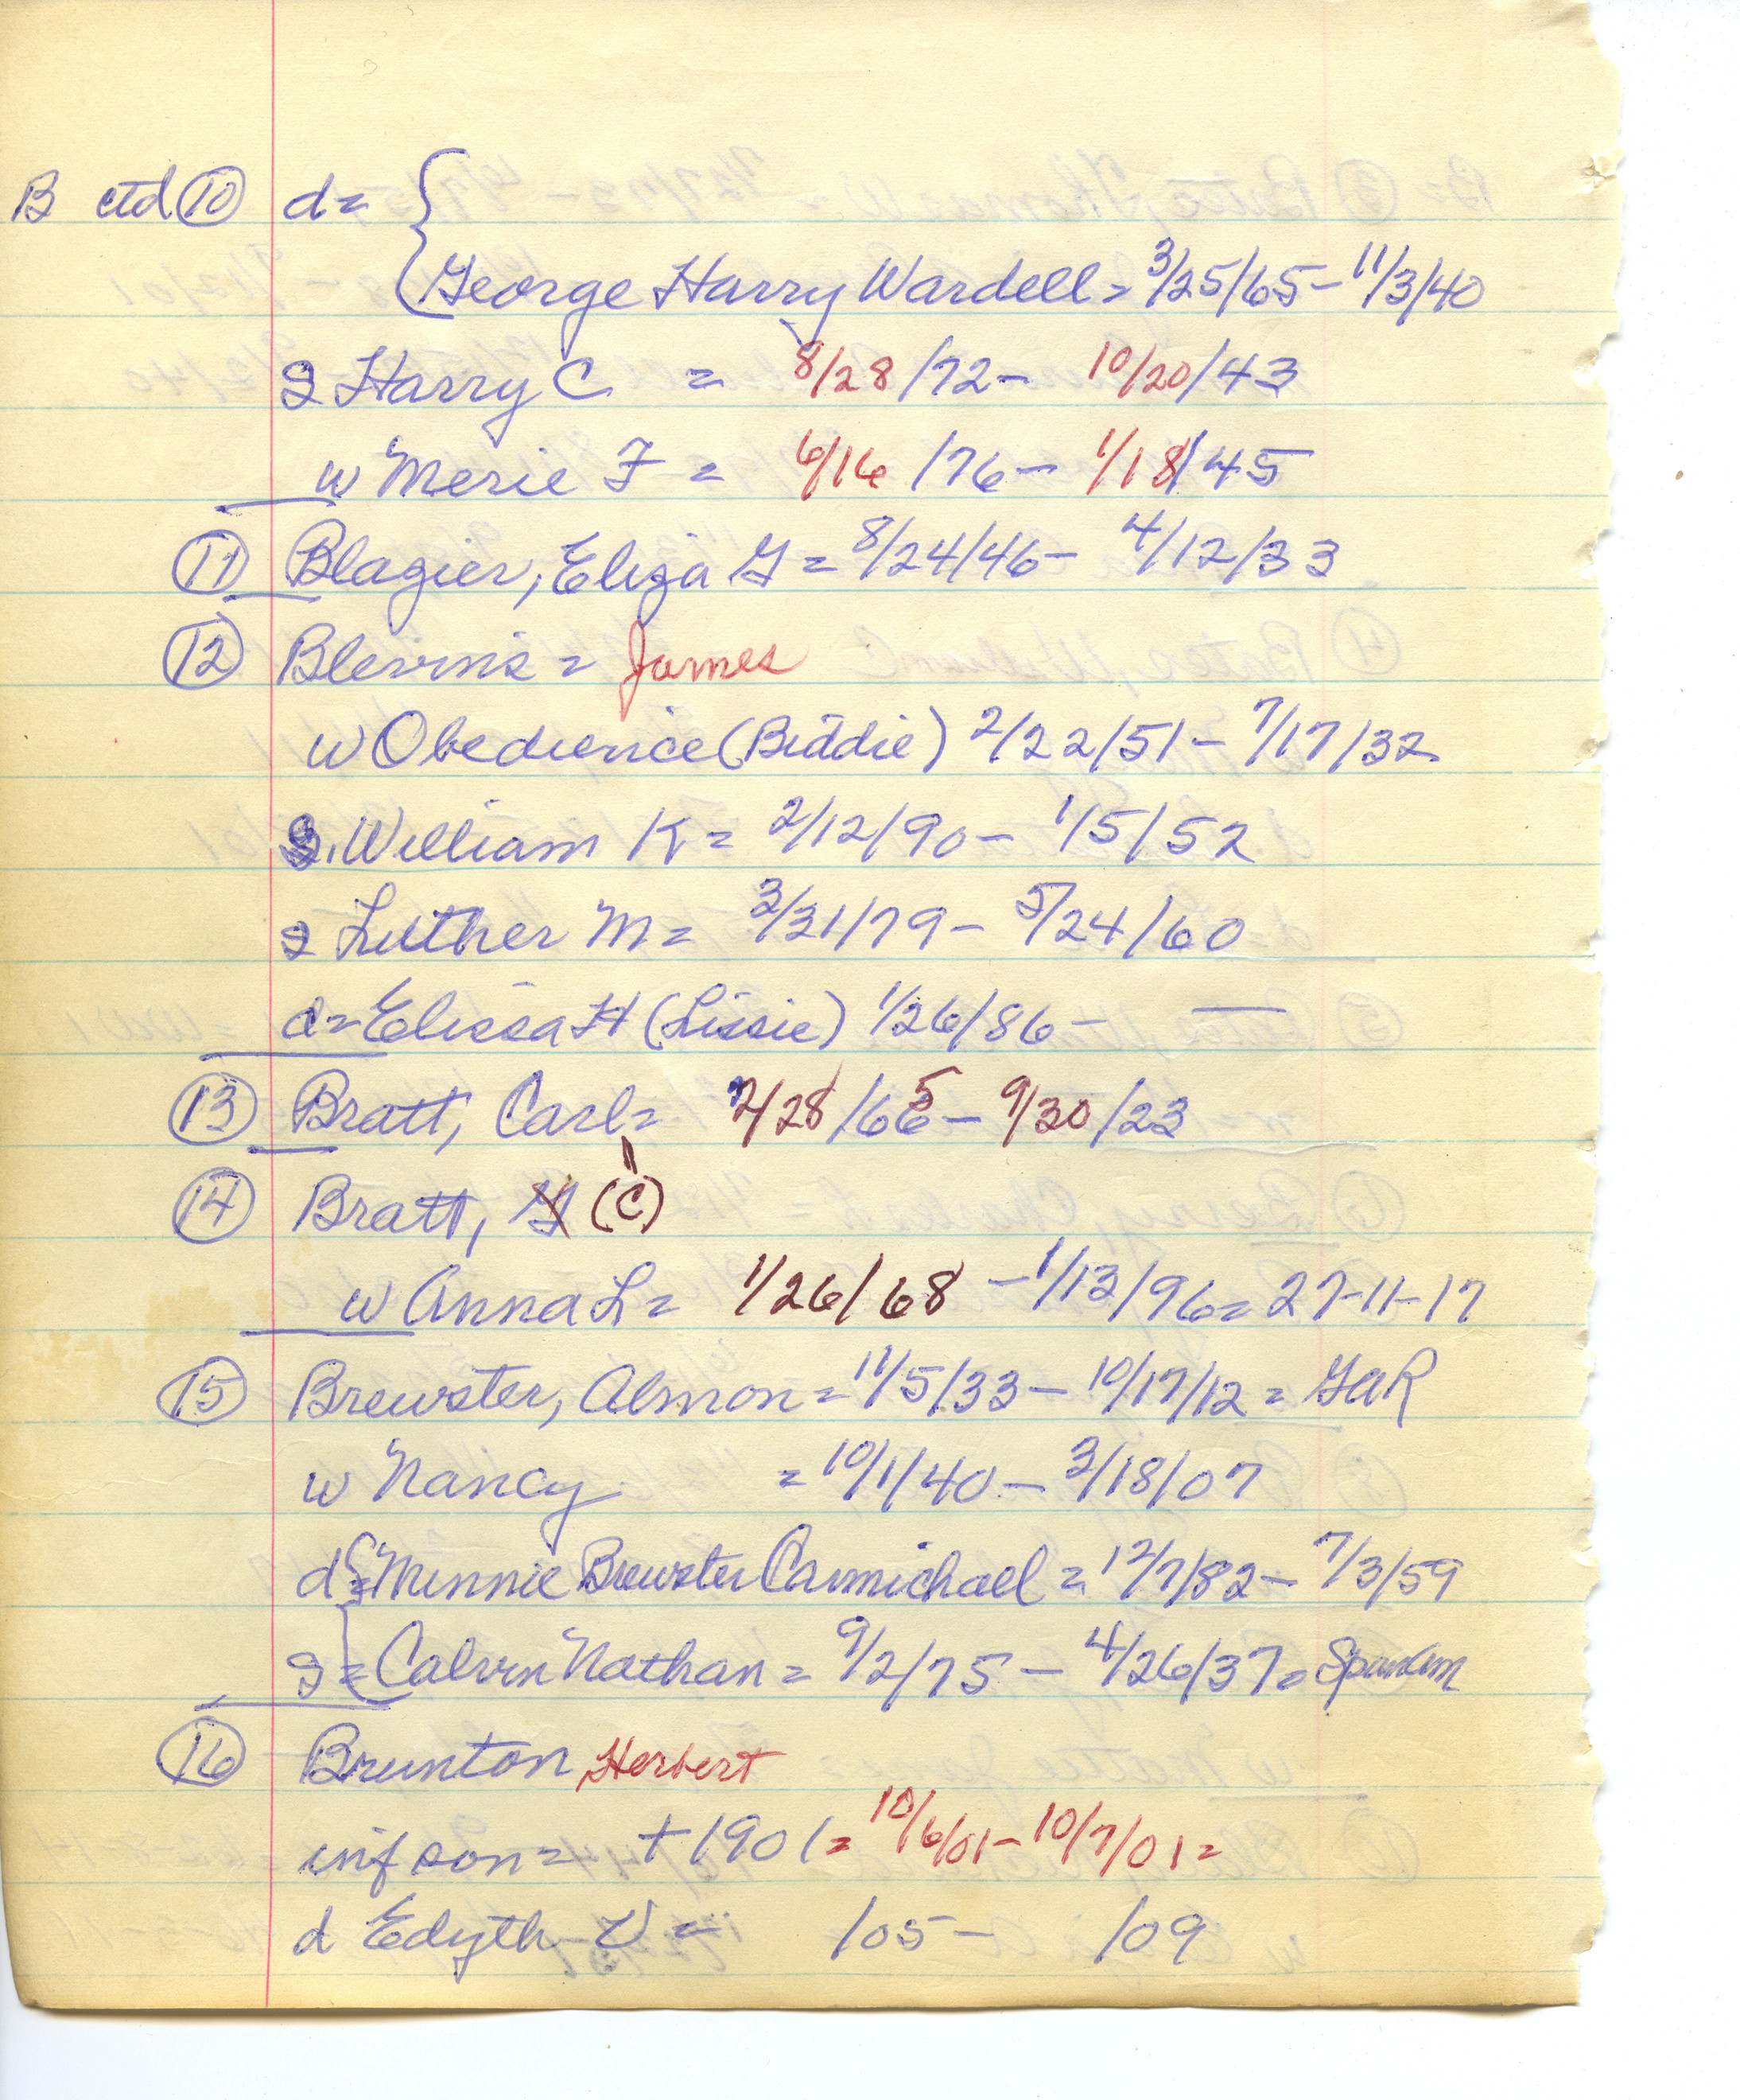 B ctd (10) d= {
{George Harry Wardell = 3/25/65 - 11/3/40
s Harry C = 8/28/72 - 10/20/43
w Merie F = 6/16/76 - 1/18/45
(11) Blazier, Eliza G = 8/24/46 - 4/12/33
(12) Blevins = James
w Obedience (Biddie) 2/22/51 - 7/17/32
s. William K = 2/12/90 - 1/5/52
s Luther M = 3/31/79 - 5/24/60
d = Elissa H (Lissie) 1/26/86 - —
(13) Bratt, Carl = 2/28/665 - 9/30/23
(14) Bratt, G (C)
w Anna L = 1/26/68 - 1/13/96 = 27-11-17
(15) Brewster, Almon = 11/5/33 - 10/17/12 = GAR
w Nancy = 10/1/40 - 3/18/07
d { = Minnie Brewster Carmichael = 12/7/82 - 7/3/59
s { = Calvin Nathan = 9/2/75 - 4/26/37 = SpanAm
(16) Brunton Herbert
inf son = +1901 = 10/6/01 - 10/7/01 =
d Edyth V = /05 - /09